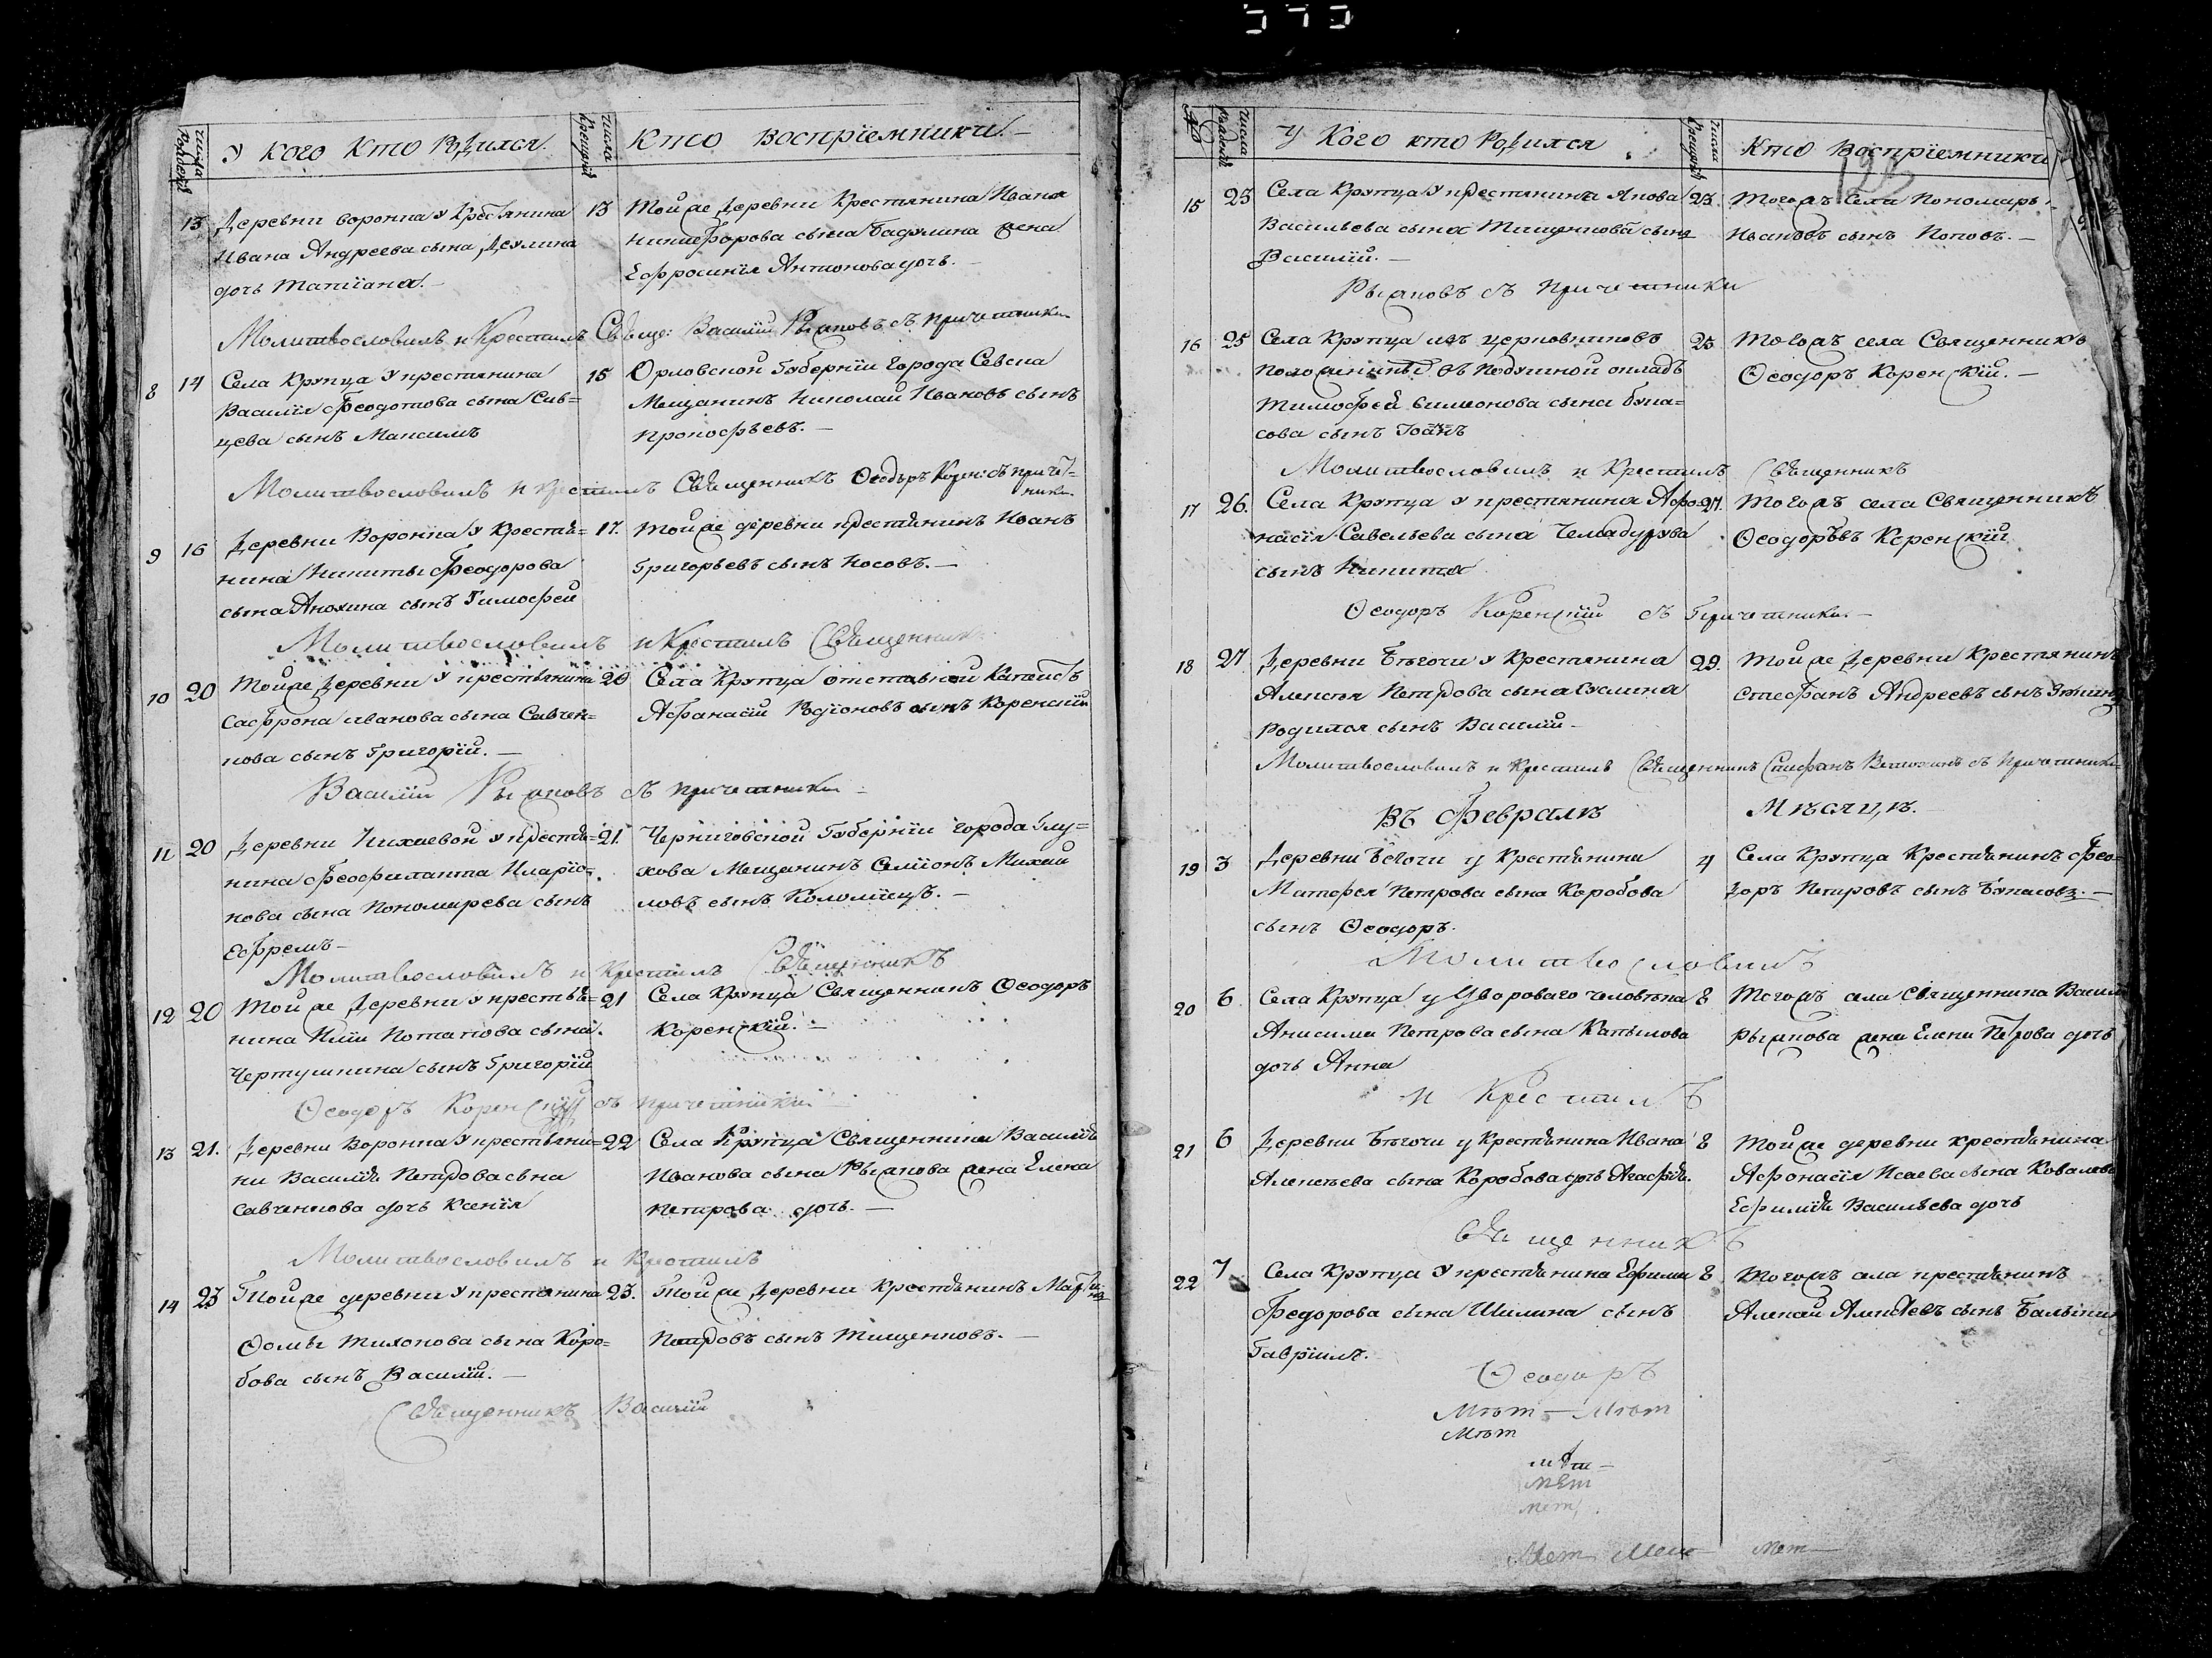 числа рожденій
У кого кто Родился.
числа крещеній
Кто воспріемники.
13 Деревни воронка у Крестьянина
Ивана Андреева сына
дочь Татіана.
13 Тойже Деревни Крестьянина Ивана
Никифорова сына Бадулина жена
Ефросинія Антонова дочь.
Молитвословилъ и Крестилъ Свяще: Василій Рыжковъ съ причетники
8 14 Села Крупца У крестьянина
Василія Феодотова сына Сав=
цева сынъ Максимъ
15 Орловской Губерніи города Севска
Мещанинъ Николай Ивановъ сынъ
Прокофьевъ.
Молитвословилъ и крестилъ Священникъ Ѳеодоръ Корен: съ причет=
ники
9 16 Деревни Воронка у Крестья=
нина Никиты Феодорова
сына Анохина сынъ Тимофей
17. Тойже деревни крестьянинъ Иоанъ
Григорьевъ сынъ Носовъ.
Молитвословилъ и Крестилъ Священникъ
10 20 Тойже Деревни У крестьянина
Сафрона иванова сына Савчен=
кова сынъ Григорій.
20 Села Крупца отставной
Афанасій Родіоновъ сынъ Коренскій
Василій Рыжковъ съ причетники
11 20 Деревни у крестья=
нина Феофилакта Иларіо=
нова сына Пономарева сынъ
Ефремъ
21. Черниговской Губерніи города Глу=
хова Мещанинъ Семіонъ Михай
ловъ сынъ Коломіецъ.
Молитвословилъ и Крестилъ Священникъ
12 20 Тойже Деревни у крестья=
нина Иліи Потапова сына
Чертушкина сынъ Григорій
21 Села Крупца Священникъ Ѳеодоръ
Коренскій.
Ѳеодоръ Коренскій съ причетники
13 21. Деревни Воронка у крестьяни=
на Василія Петрова сына
Савченкова дочь Ксенія
22 Села Крупца Священника Василія
Иванова сына Рыжкова жена Елена
петрова дочь.
Молитвословилъ и Крестилъ
14 23 Тойже деревни у крестьянина
Ѳомы Тихонова сына Коро=
бова сынъ Василій.
23. Тойже Деревни Крестьянинъ Мартинъ
Петровъ сынъ Тищенковъ.
Священникъ Василій
числа рожденій
У Кого кто Родился
числа крещеній
Кто Воспріемники
15 23 Села Крупца У крестьянина Якова
Васильева сына Тищенкова сынъ
Василій.
23. Тогожъ Села Пономарь
Ивановъ сынъ Поповъ.
Рыжковъ съ причетники
16 25 Села Крупца изъ церковниковъ
въ Подушной окладъ
Тимофей Симеонова сына Бука=
сова сынъ Іоанъ
25 Тогожъ села Священникъ
Ѳеодоръ Коренскій.
Молитвословилъ и Крестилъ Священникъ
17 26. Села Крупца у крестьянина Афо=
насія Савельева сына
сынъ Никита
27. Тогожъ села Священникъ
Коренскій
Ѳеодоръ Коренскій съ Причетники.
18 27 Деревни Бѣгочи у Крестьянина
Алексѣя Петрова сына Суслина
родился сынъ Василій
29. Тойже Деревни Крестьянинъ
Стефанъ Андреевъ сынъ
Молитвословилъ и Крестилъ Священникъ Стефанъ съ Причетники
Въ Февралѣ Мѣсяцѣ.
19 3 Деревни Бѣгочи у Крестьянина
Матфея Петрова сына Коробова
сынъ Ѳеодоръ.
4 Села Крупца Крестьянинъ Фео=
доръ Петровъ сынъ
Молитвословилъ
20 6 Села Крупца у Двороваго человѣка
Анисима Петрова сына Капылова
дочь Анна
Тогожъ села Священника Васил
Рыжкова жена Елена Петрова дочь
и Крестилъ
21 6 Деревни Бѣгочи у Крестьянина Ивана
Алексѣева сына Коробова дочь Агафія.
Тойже деревни крестьянина
Афонасія Исаева сына Ковалева
Ефимія Васильева дочь
Священникъ
22 7 Села Крупца У крестьянина Ефима
Федорова сына Шилина сынъ
Гавріилъ.
Тогожъ села крестьянинъ
Алексѣевъ сынъ
Ѳеодоръ
Мѣт Мѣт
Мѣт
мѣт
мет
мет
Мет
мет